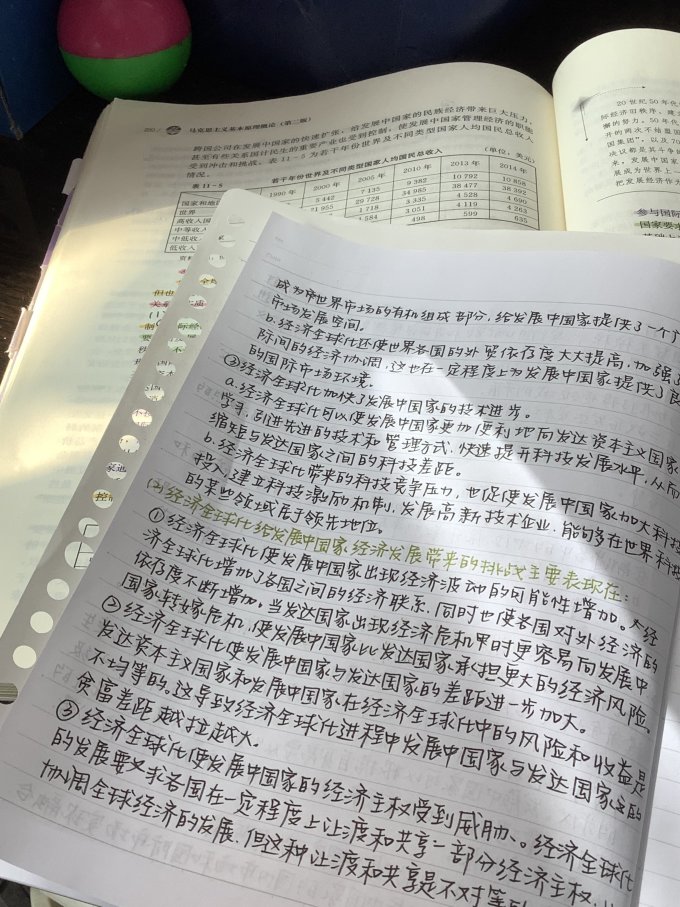 280
马克思主义基本原理概论（第二版）
跨国公司在发展中国家的快速扩张，给发展中国家的民族经济带来巨大压力，
甚至有些关系国计民生的重要产业也受到控制，使发展中国家管理经济的职能
受到冲击和挑战。表 11-5 为若干年份世界及不同类型国家人均国民总收入
情况。
表 11-5 若干年份世界及不同类型国家人均国民总收入 （单位：美元）
国家和地区 1990 年 2000 年 2005 年 2010 年 2013 年 2014 年
世界 5 442 7 135 9 382 10 792 10 858
高收入国 21 955 29 728 34 985 38 477 38 392
中等收入 1 718 3 335 4 528 4 690
中低收入 3 051 4 119 4 263
低收入 498 599 635
20 世纪 50 年代
际经济旧秩序、建立
参与国际
国家要求
成为市世界市场的有机组成部分，给发展中国家提供了一个广
市场发展空间。
b.经济全球化还使世界各国的外贸依存度大大提高，加强了
际间的经济协调，这也在一定程度上为发展中国家提供了良
的国际市场环境。
③经济全球化加快了发展中国家的技术进步。
a.经济全球化可以使发展中国家更加便利地向发达资本主义国家
学习，引进先进的技术和管理方式，快速提升科技发展水平，从而
缩短与发达国家之间的科技差距。
b.经济全球化带来的科技竞争压力，也促使发展中国家加大科技
投入，建立科技激励机制，发展高新技术企业，能够在世界科技
的某些领域居于领先地位。
(2)经济全球化给发展中国家经济发展带来的挑战主要表现在：
①经济全球化使发展中国家出现经济波动的可能性增加。经
济全球化增加了各国之间的经济联系，同时也使各国对外经济的
依存度不断增加。当发达国家出现经济危机时更容易向发展中
国家转嫁危机，使发展中国家比发达国家承担更大的经济风险。
②经济全球化使发展中国家与发达国家的差距进一步加大。
发达资本主义国家和发展中国家在经济全球化中的风险和收益是
不均等的。这导致经济全球化进程中发展中国家与发达国家的
贫富差距越拉越大。
③经济全球化使发展中国家的经济主权受到威胁。经济全球化
的发展要求各国在一定程度上让渡和共享一部分经济主权，以
协调全球经济的发展，但这种让渡和共享是不对等的